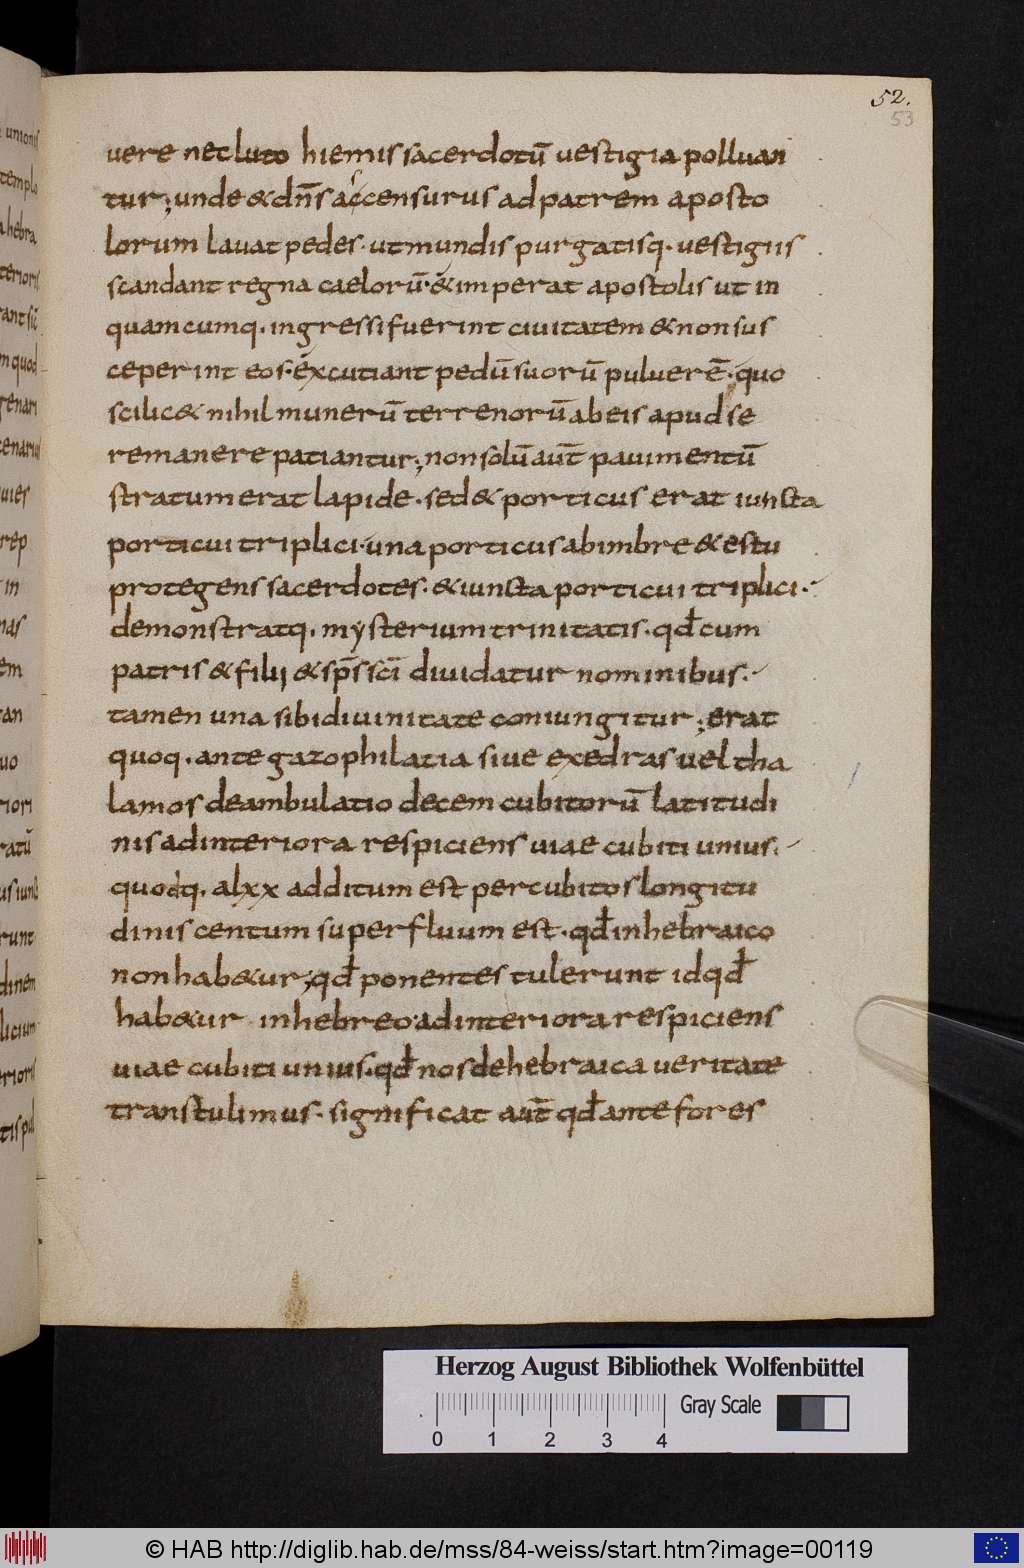 52.
53
uere nec luto hiemis sacerdotū uestigia polluan
tur; unde & dn̄s accensurus ad patrem aposto
lorum lauat pedes · ut mundis purgatisq· uestigiis
scandant regna caelorū· & imperat apostolis ut in
quamcumq· ingressi fuerint ciuitatem & non sus
ceperint eos· excutiant pedū suorū puluerē· quo
scilic& nihil munerū terrenorū ab eis apud se
remanere patiantur; non solū aūt pauimentū
stratum erat lapide · sed & porticus erat iuncta
porticui triplici· una porticus ab imbre & estu
protegens sacerdotes · & iuncta porticui triplici ·
demonstratq· mysterium trinitatis · qd̄ cum
patris & filij & sp̄s sc̄i diuidatur nominibus ·
tamen una sibi diuinitate coniungitur; erat
quoq· ante gazophilatia siue exedras uel tha
lamos deambulatio decem cubitorū latitudi
nis ad interiora respiciens uiae cubiti unius ·
quodq· a lxx additum est per cubitos longitu
dinis centum superfluum est · qd̄ in hebraico
non hab&ur; qd̄ ponentes tulerunt id qd̄
hab&ur in hebreo· ad interiora respiciens
uiae cubiti unius · qd̄ nos de hebraica ueritate
transtulimus · significat aūt qd̄ ante fores
unionis
templo
hebra
terioris
quod
uies
rep
in
nas
em
uo
riori
runt
dinem
Herzog August Bibliothek Wolfenbüttel
Gray Scale
0 1 2 3 4
© HAB http://diglib.hab.de/mss/84-weiss/start.htm?image=00119